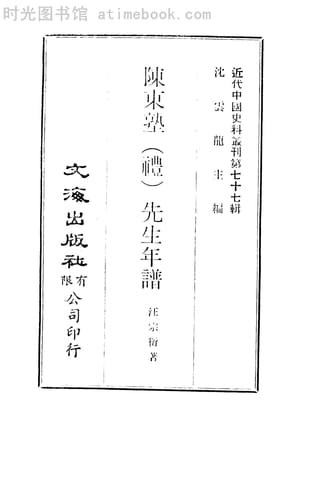 时光图书馆 - atimebook.com
近代中國史料叢刊第七十七輯
沈雲龍主編
陳東塾(禮)先生年譜
汪宗衍著
文海出版社有限公司印行